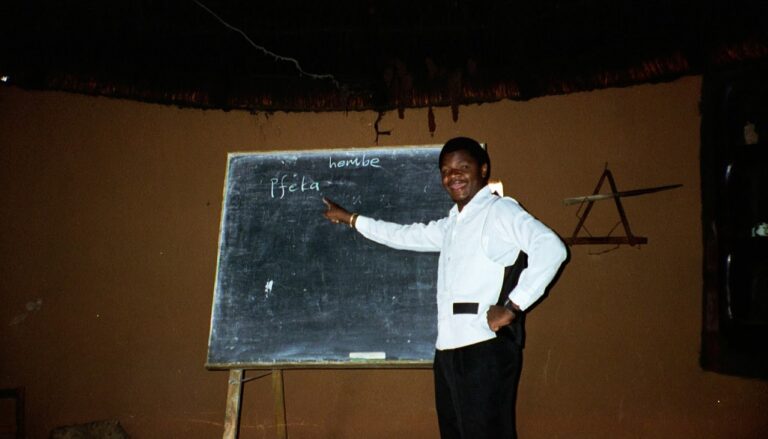 hembe
Pfeka